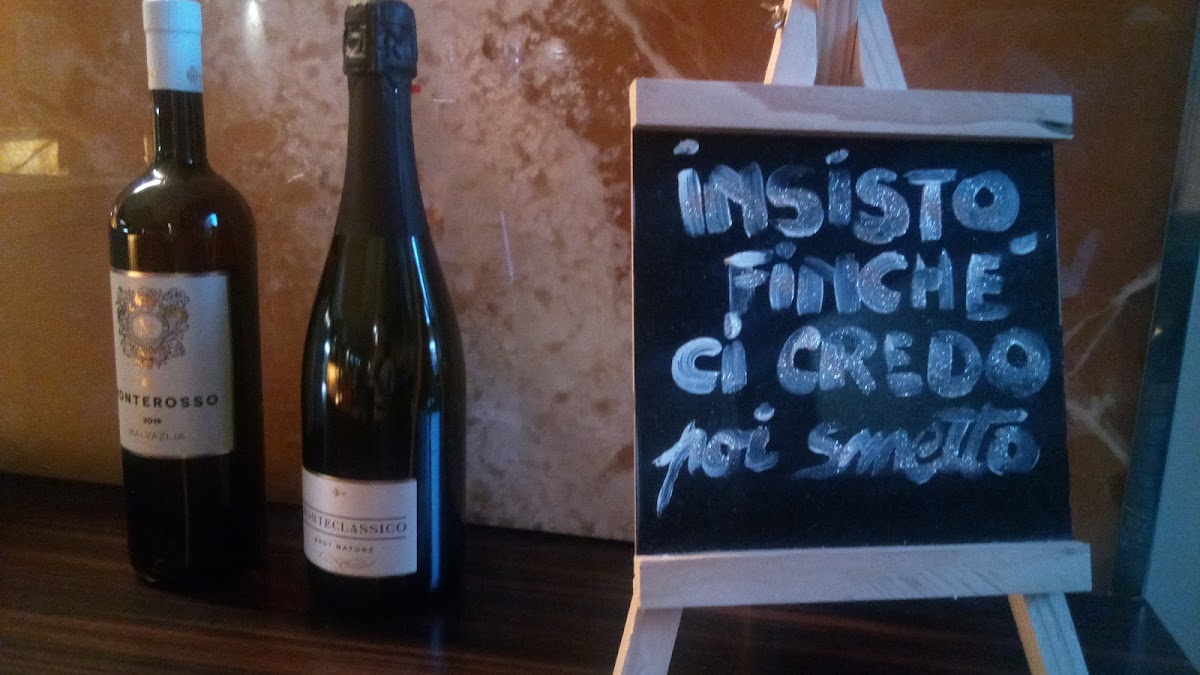 ONTEROSSO
2019
MALVAZIJA
ONTECLASSICO
BRUT NATURE
iNSiSTO
FiNCHÉ
Ci CREDO
poi smetto